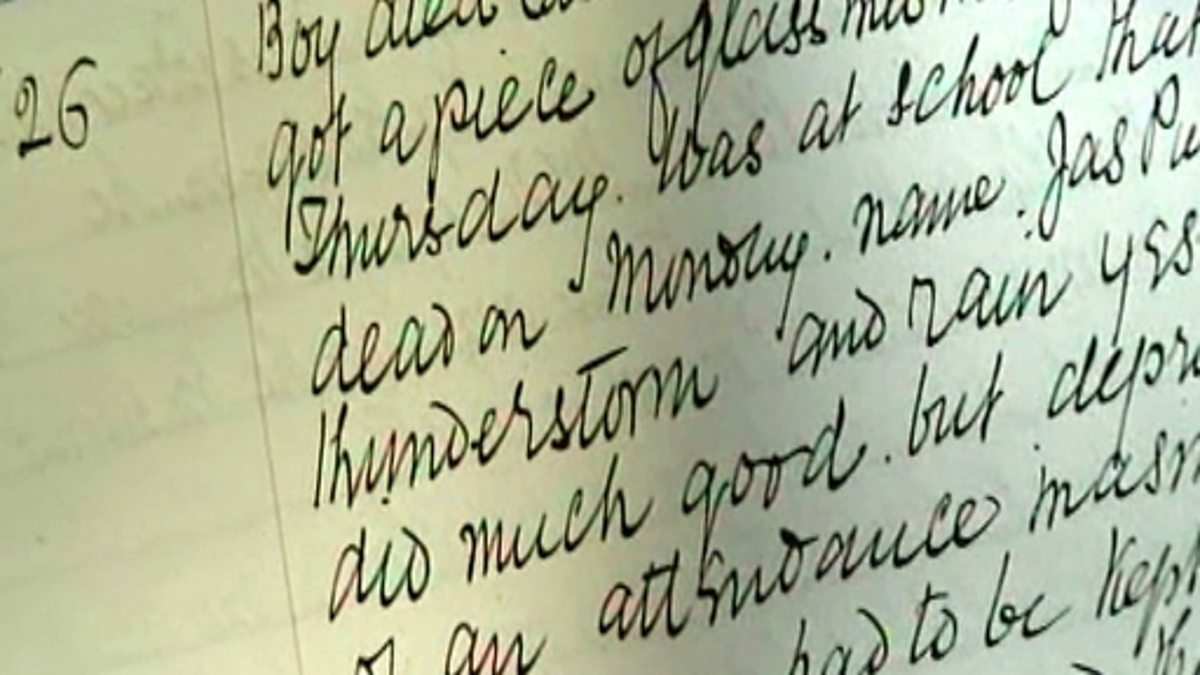 26 Boy died
got a piece of glass
Thursday. Was at school
dead on Monday. name. Jas
Thunderstorm and rain
did much good. but
an attendance
had to be Kept